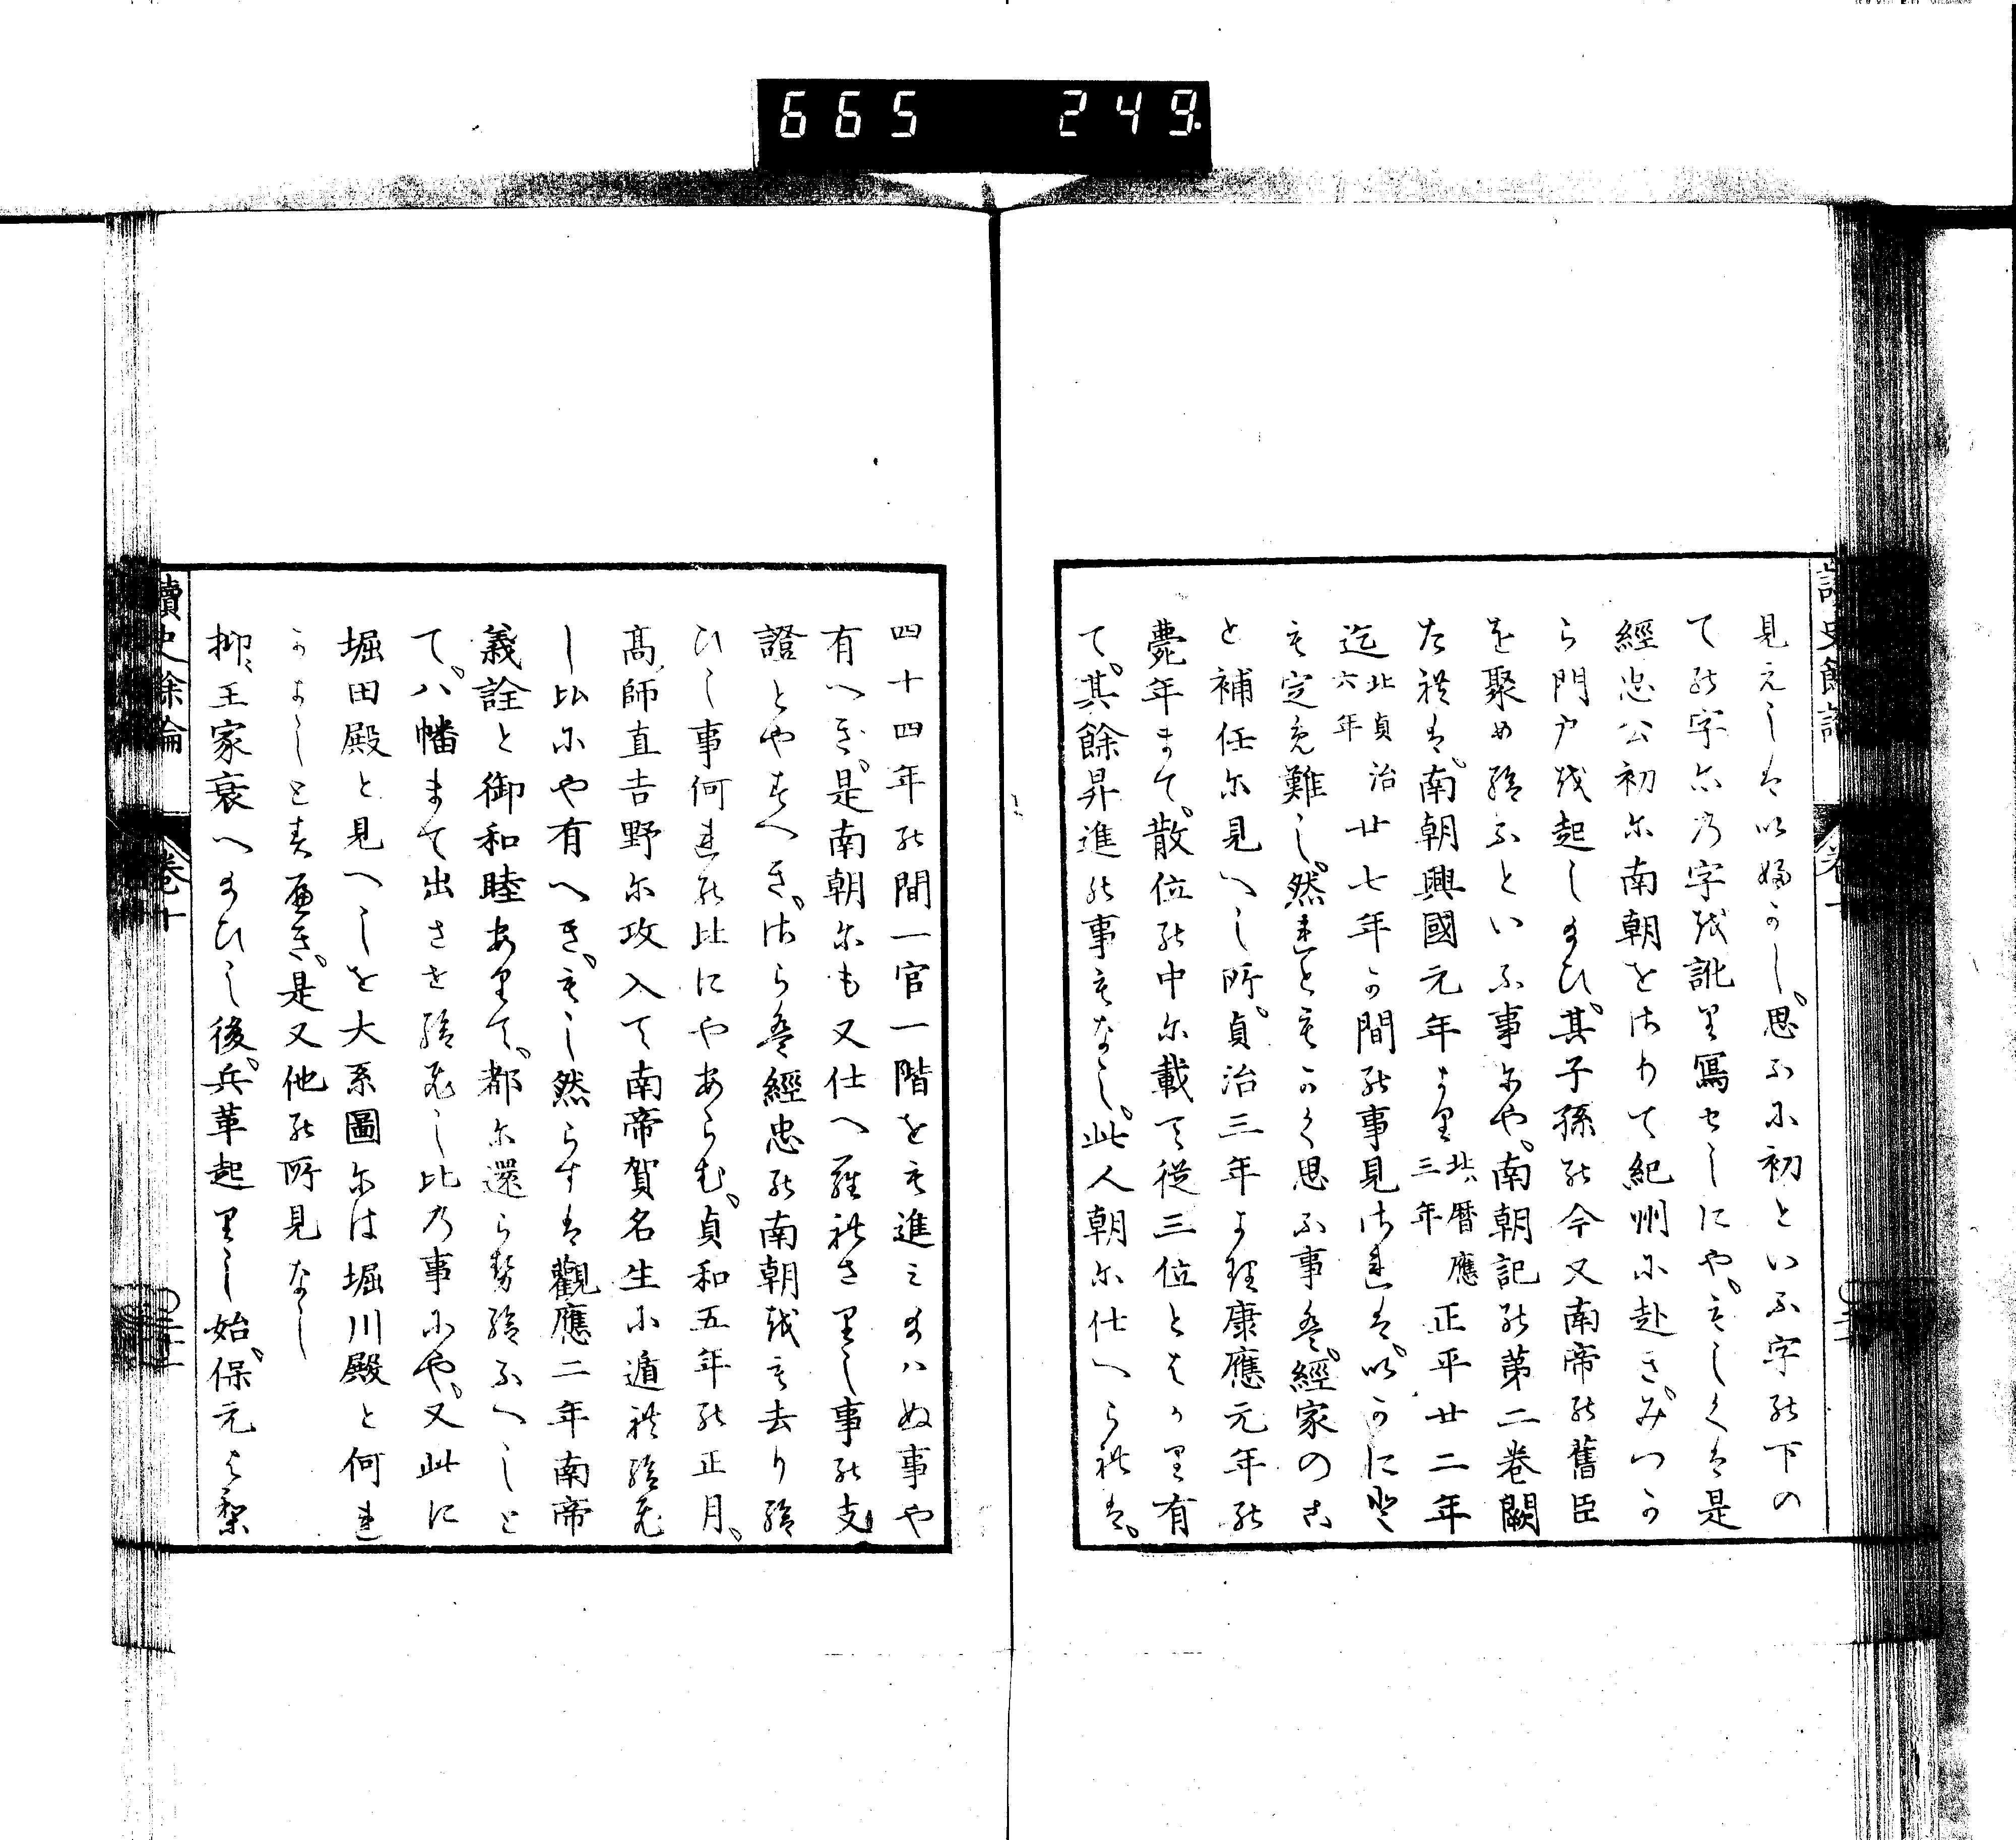 665 249
見えしは以ぶかし思ふに初といふ字能下の
て能字尓乃字越訛里寫せしにやもしくは是
經忠公初尓南朝をはりて紀州に赴きみつか
ら門戸越起し給ひ其子孫能今又南帝能舊臣
を聚め給ふといふ事尓や南朝記能第二卷闕
た禮は南朝興國元年より北暦應三年正平廿二年
迄北貞治六年廿七年の間能事見は連は以かに登
も定免難し然連ともかく思ふ事は經家のこ
と補任尓見へし所貞治三年より康應元年能
薨年まて散位能中尓載て從三位とはかり有
て其餘昇進能事もなし此人朝尓仕へら禮は
四十四年能間一官一階をも進み給ハぬ事や
有へき是南朝尓も又仕へ羅禮さりし事能支
證とやすへきさら盤經忠能南朝越も去り給
ひし事何連能比にやあらむ貞和五年能正月
高師直吉野尓攻入て南帝賀名生に遁禮給ひ
し比尓や有へきもし然らすは觀應二年南帝
義詮と御和睦ありて都尓還らせ給ふへしと
て八幡まて出させ給ひし比乃事にや又此に
堀田殿と見へしを大系圖尓は堀川殿と何連
かよしと春へき是又他能所見なし
抑王家衰へ給ひし後兵革起りし始保元与利
讀史餘論 卷十